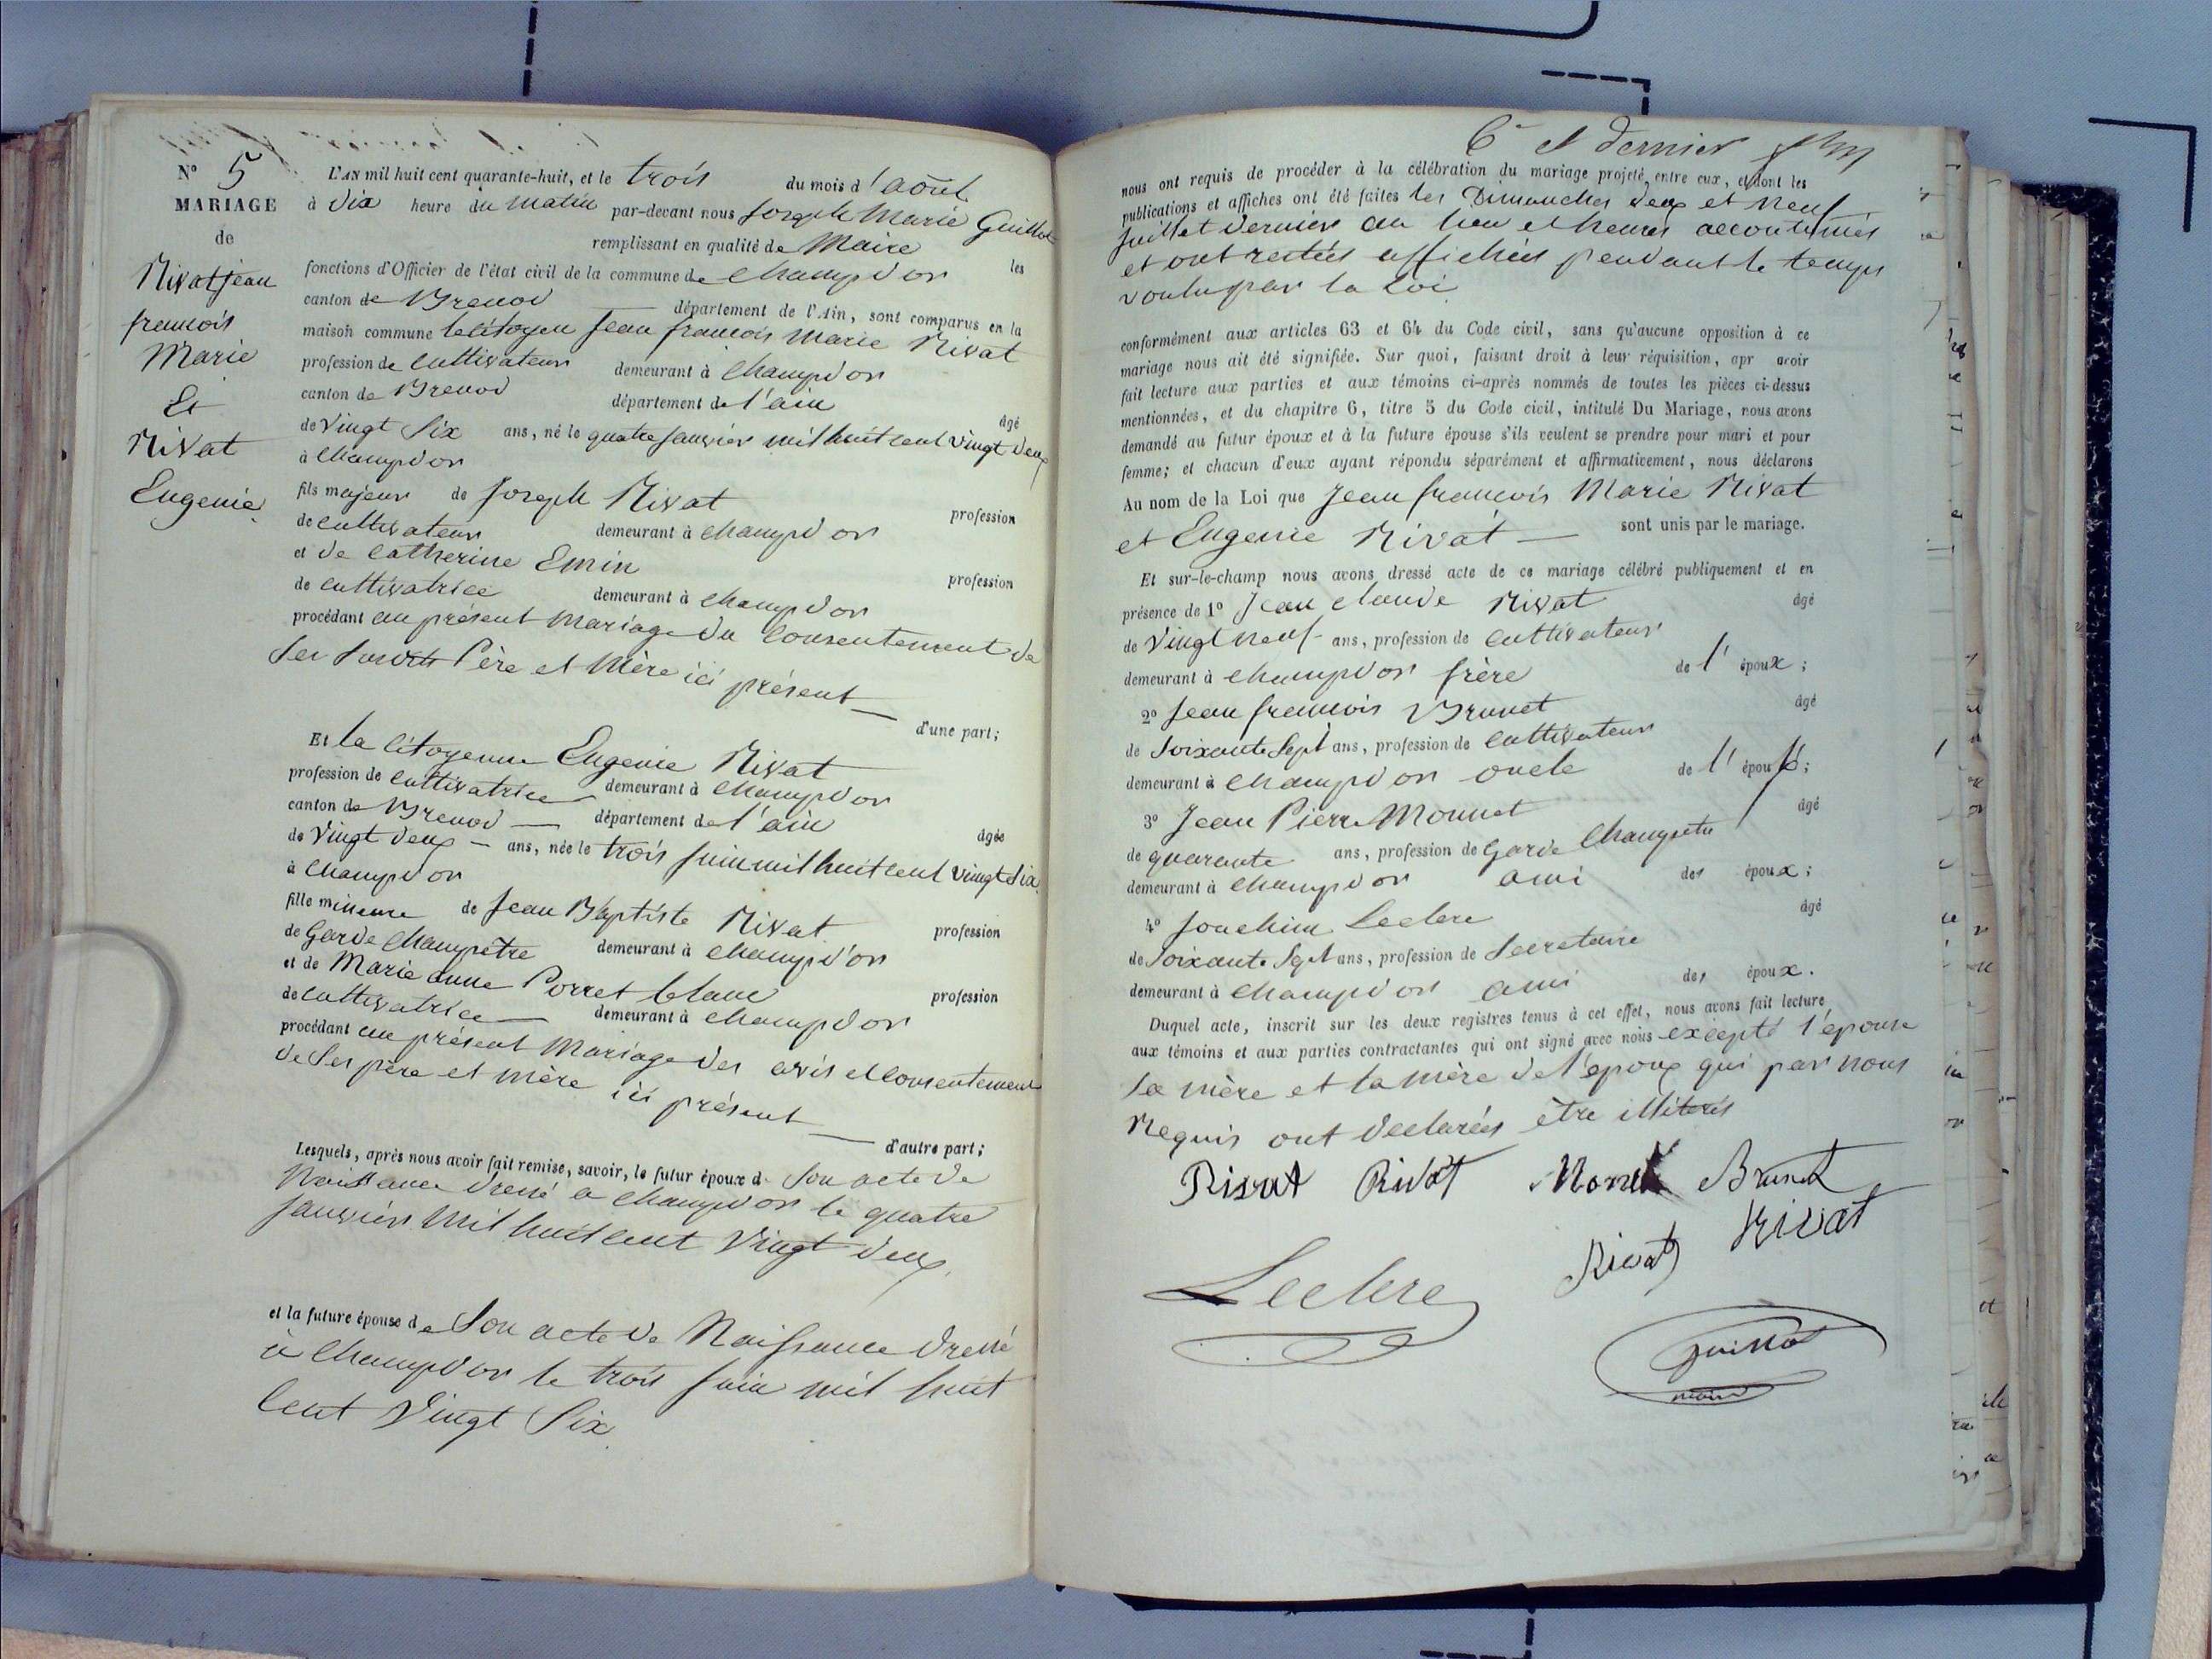 N° 5
MARIAGE
de
Rivat jean
francois
Marie
Et
Rivat
Eugenie
L'AN mil huit cent quarante-huit, et le trois du mois d'août
à dix heure du matin par-devant nous Joseph Marie Guillot
remplissant en qualité de Maire les
fonctions d'Officier de l'état civil de la commune de Champdor
canton de Brenod département de l'Ain, sont comparus en la
maison commune le citoyen Jean francois Marie Rivat
profession de Cultivateur demeurant à Champdor
canton de Brenod département de l'ain âgé
de Vingt Six ans, né le quatre janvier mil huit cent vingt deux
à Champdor
fils majeur de Joseph Rivat profession
de cultivateur demeurant à Champdor
et de Catherine Emin profession
de cultivatrice demeurant à Champdor
procédant au présent mariage du Consentement de
Ses Père et Mère ici présent
d'une part;
Et la Citoyenne Eugenie Rivat
profession de Cultivatrice demeurant à Champdor
canton de Brenod département de l'ain âgée
de Vingt deux ans, née le trois juin mil huit cent vingt Six
à Champdor
fille mineure de Jean Baptiste Rivat profession
de Garde Champêtre demeurant à Champd'or
et de Marie anne Porret blanc profession
de cultivatrice demeurant à Champdor
procédant au présent Mariage des avis et Consentement
de Ses père et mère ici présent
d'autre part;
Lesquels, après nous avoir fait remise, savoir, le futur époux de Son acte de
Naissance dressé a Champdor le quatre
janvier mil huit cent Vingt deux
et la future épouse de Son acte de Naissance dressé
à Champdor le trois juin mil huit
Cent Vingt Six
6e et dernier
nous ont requis de procéder à la célébration du mariage projeté entre eux, et dont les
publications et affiches ont été faites les Dimanches deux et neuf
Juillet derniers au lieu et heures accoutumés
et ont restées affichées pendant le temps
voulu par la Loi
conformément aux articles 63 et 64 du Code civil, sans qu'aucune opposition à ce
mariage nous ait été signifiée. Sur quoi, faisant droit à leur réquisition, apr avoir
fait lecture aux parties et aux témoins ci-après nommés de toutes les pièces ci-dessus
mentionnées, et du chapitre 6, titre 5 du Code civil, intitulé Du Mariage, nous avons
demandé au futur époux et à la future épouse s'ils veulent se prendre pour mari et pour
femme; et chacun d'eux ayant répondu séparément et affirmativement, nous déclarons
Au nom de la Loi que Jean francois Marie Rivat
et Eugenie Rivat sont unis par le mariage.
Et sur-le-champ nous avons dressé acte de ce mariage célébré publiquement et en
présence de 1° Jean Claude Rivat âgé
de Vingt neuf ans, profession de Cultivateur
demeurant à Champdor frère de l'époux;
2° Jean francois Brunet âgé
de Soixante Sept ans, profession de Cultivateur
demeurant à Champdor oncle de l'épouse;
3° Jean Pierre Monnet âgé
de quarante ans, profession de Garde Champetre
demeurant à Champdor ami des époux;
4° Jouchim Leclerc âgé
de Soixante Sept ans, profession de Secretaire
demeurant à Champdor ami des époux.
Duquel acte, inscrit sur les deux registres tenus à cet effet, nous avons fait lecture
aux témoins et aux parties contractantes qui ont signé avec nous excepté l'épouse
sa mère et la mère de l'époux qui par nous
Requis ont declarées être illiterés
Rivat Rivat Monnet Brunet
Rivat Rivat
Leclerc
Guillot
maire